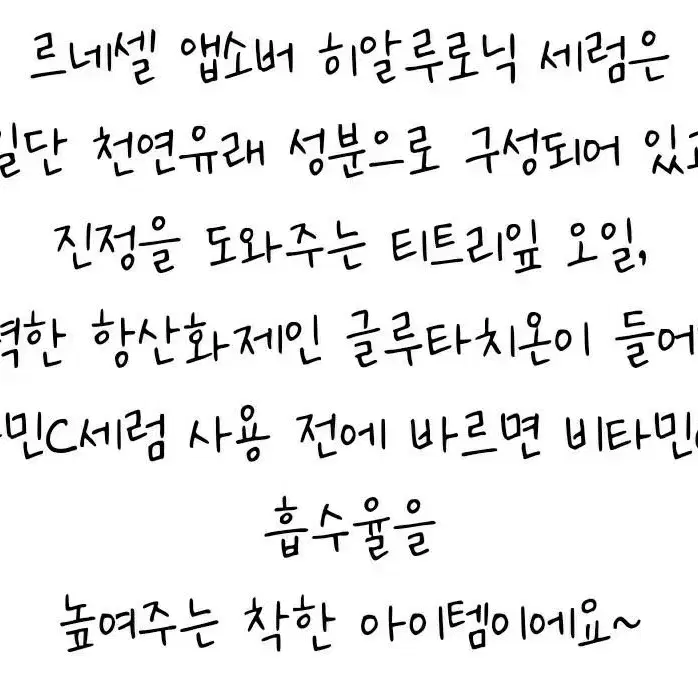 르네셀 앱소버 히알루로닉 세럼은
일단 천연유래 성분으로 구성되어 있고
진정을 도와주는 티트리잎 오일,
항산화제인 글루타치온이
민C세럼 사용 전에 바르면 비타민
흡수율을
높여주는 착한 아이템이에요~